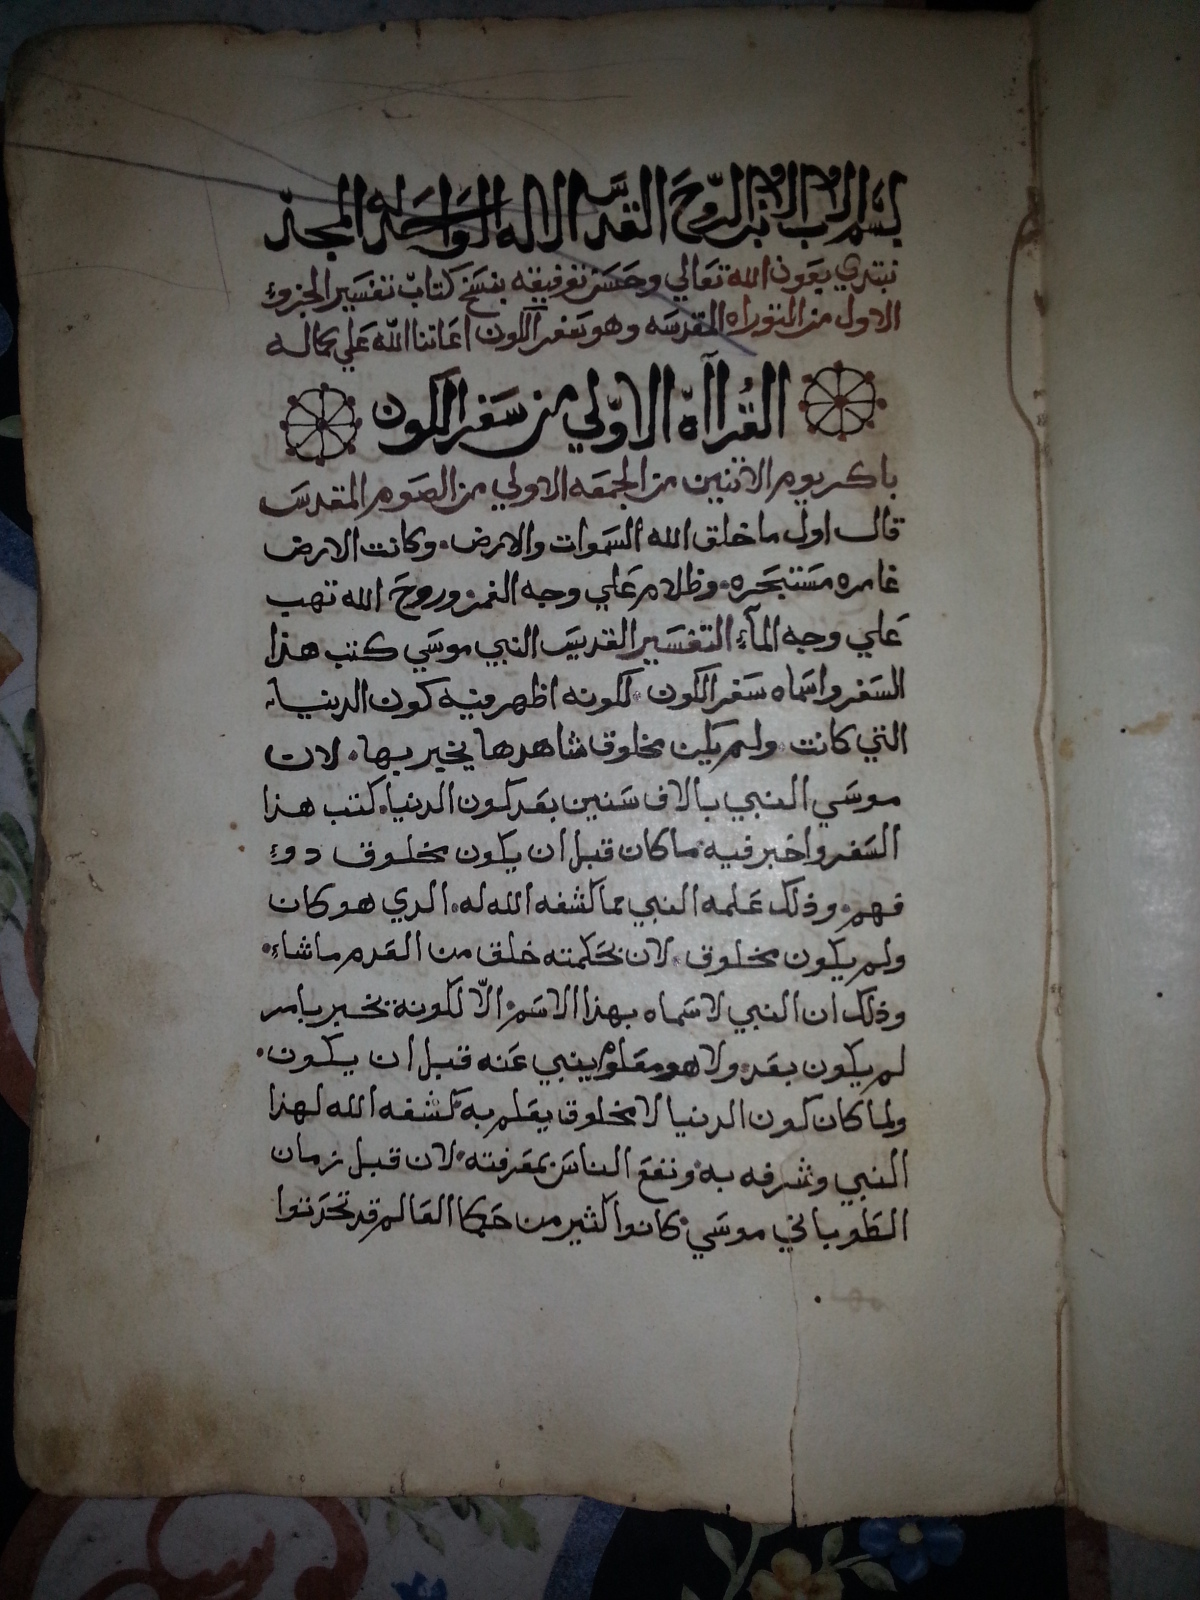 بسم الاب والابن والروح القدس الاله الواحد له المجد
نبتدي بعون الله تعالي وحسن توفيقه بنسخ كتاب تفسير الجزوء
الاول من التوراه المقدسه وهو سفر الكون اعاننا الله علي كماله
القرآة الاولي من سفر الكون
باكر يوم الاثنين من الجمعه الاولي من الصوم المقدس
قال اول ما خلق الله السموات والارض. وكانت الارض
غامره مستبحره. وظلام علي وجه الغمر وروح الله تهب
علي وجه المآء التفسير القديس النبي موسي كتب هذا
السفر واسماه سفر الكون. لكونه اظهر فيه كون الدنيا
التي كانت. ولم يكن مخلوق شاهدها يخبر بها. لان
موسي النبي بالاف سنين بعد كون الدنيا. كتب هذا
السفر واخبر فيه ما كان قبل ان يكون مخلوق دوء
فهم. وذلك علمه النبي مما كشفه الله له. الدي هو كان
ولم يكون مخلوق. لان بحكمته خلق من العدم ماشاء.
وذلك ان النبي لاسماه بهذا الاسم الّا لكونه يخبر بامر
لم يكون بعد. ولا هو معلوم ينبي عنه قبل ان يكون.
ولما كان كون الدنيا لا مخلوق يعلم به كشفه الله لهذا
النبي وشرفه به ونفع الناس بمعرفته. لان قبل زمان
الطوباني موسي كانوا كثير من حكما العالم قد تحدتوا